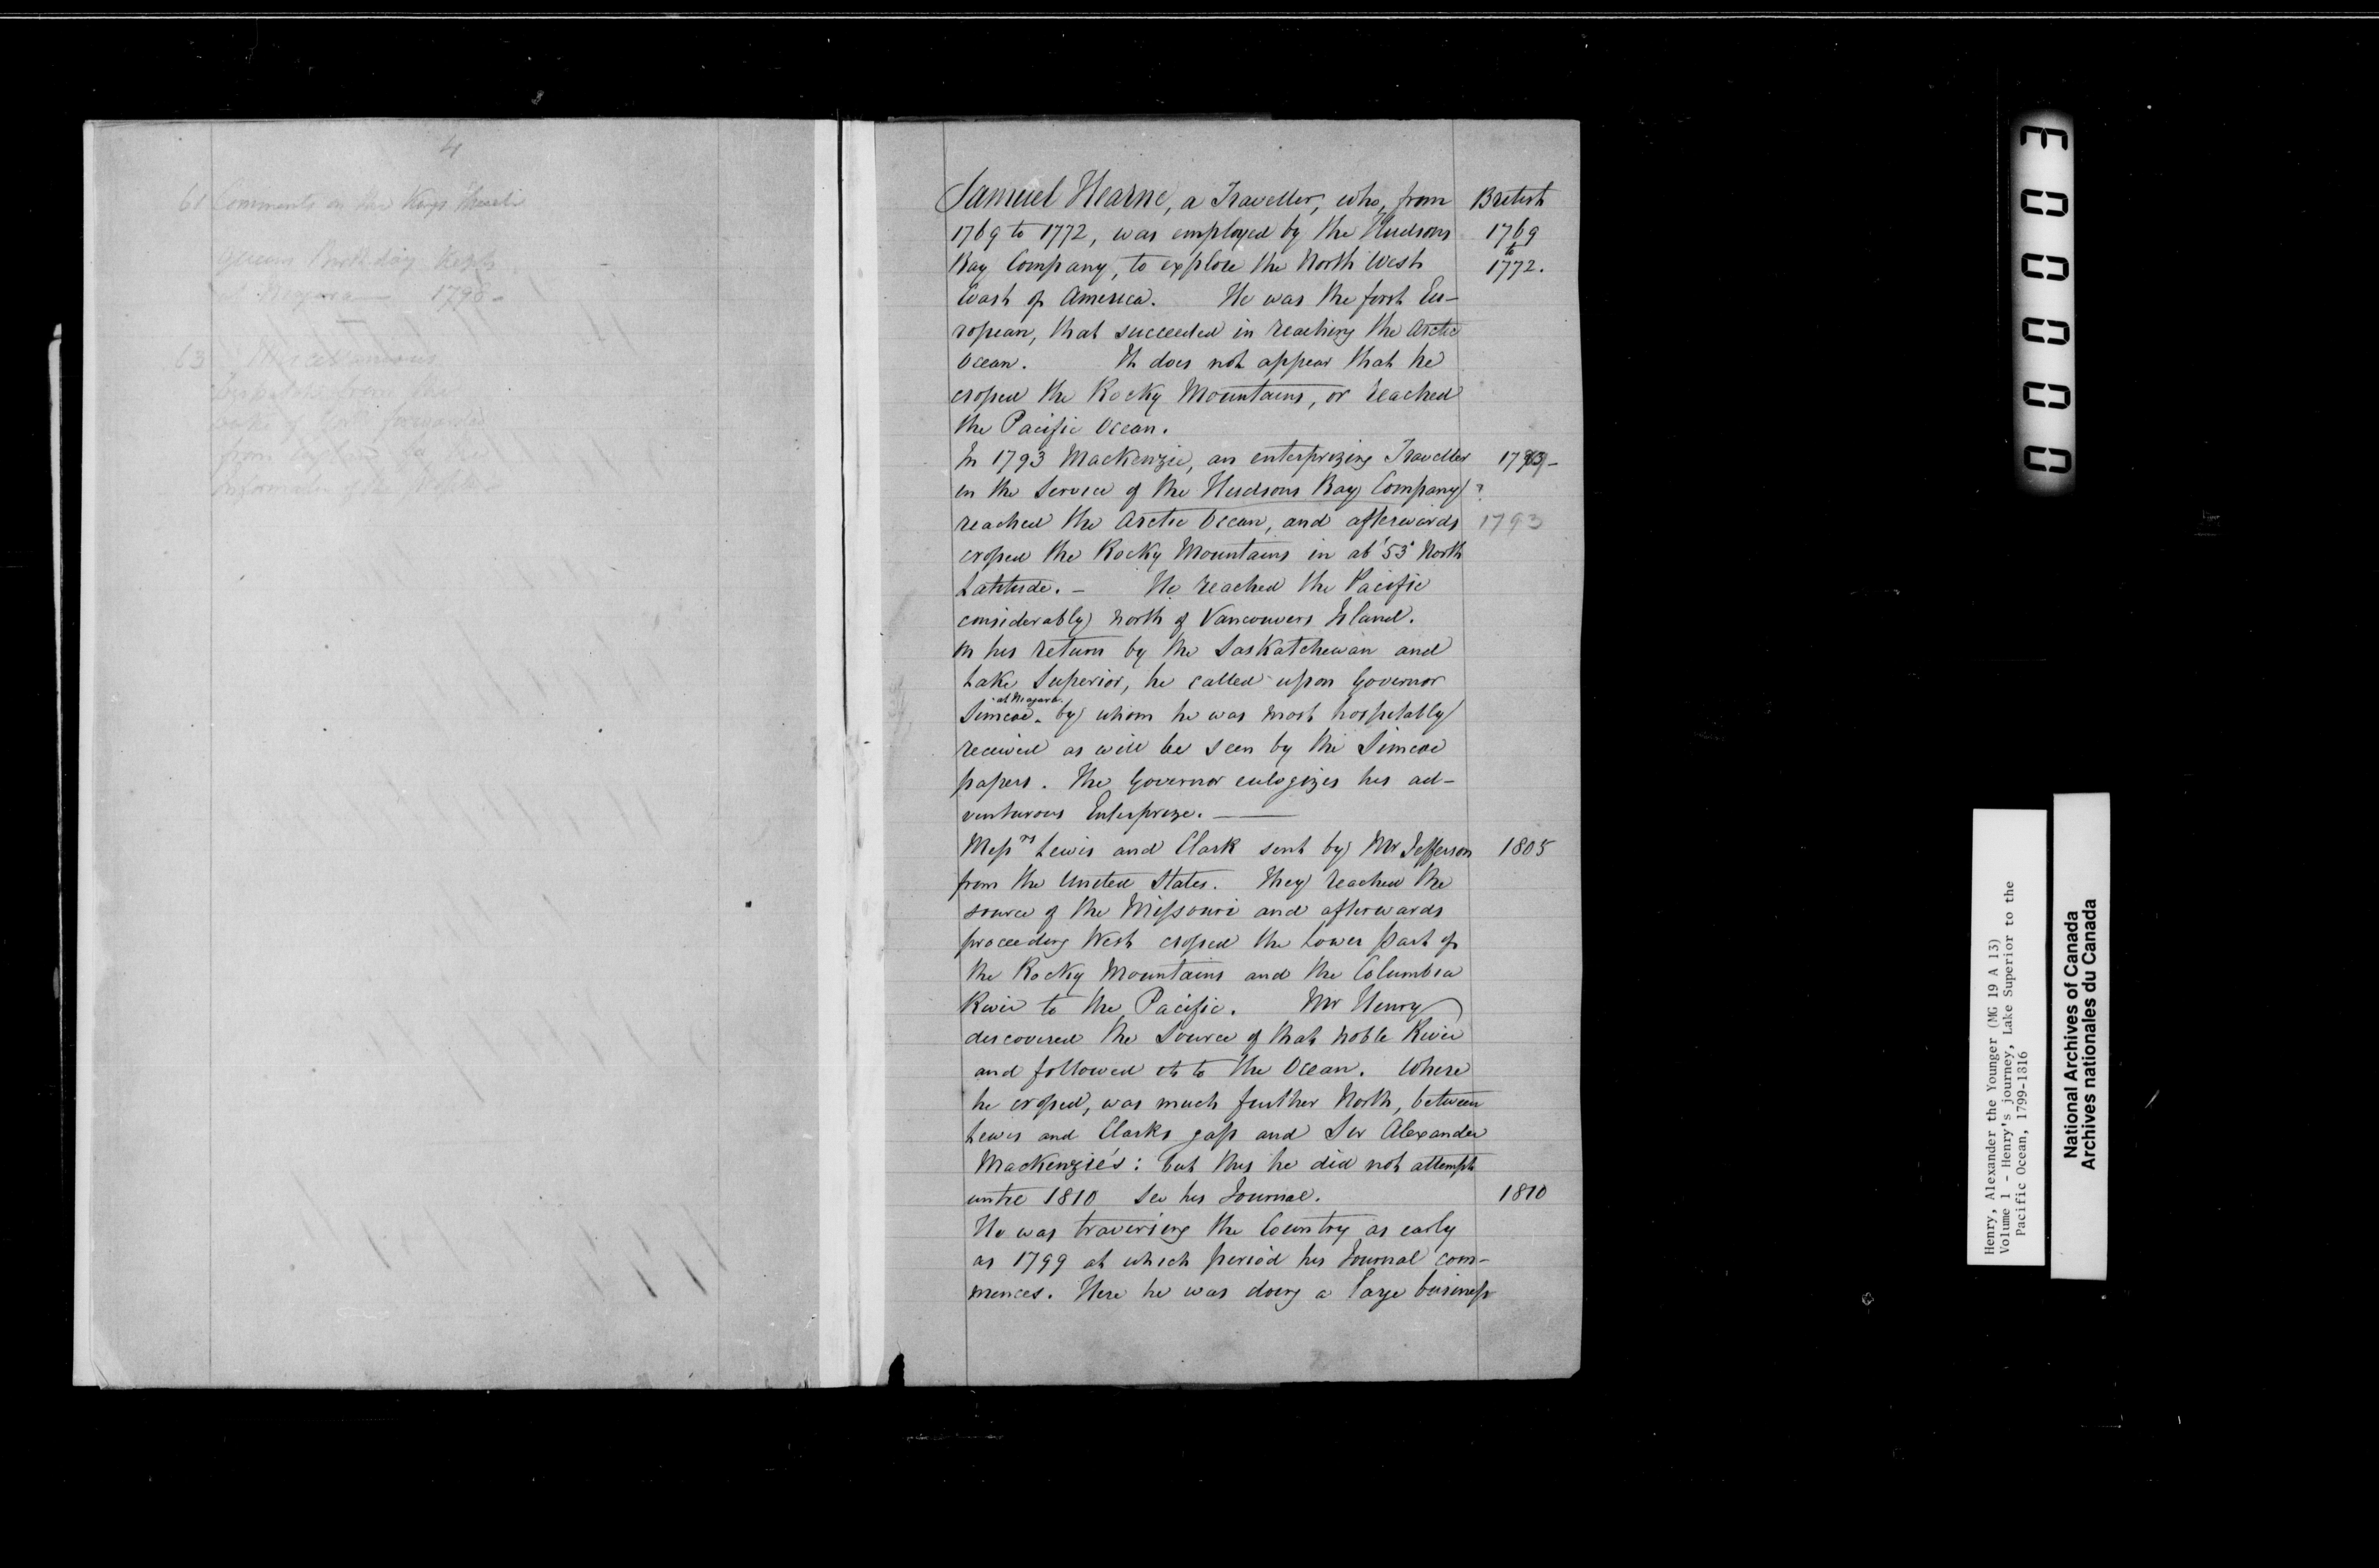 4
61 Comments on the Kings Health
Queens Birthday kept
Niagara 1796 -
63 Miscellaneous
from
of York forwarded
from England for the
information of the People -
Samuel Hearne, a Traveller, who, from British
1769 to 1772, was employed by the Hudsons 1769
to
Bay Company, to explore the North West 1772.
Coast of America. He was the first Eu-
ropean, that succeeded in reaching the Arctic
Ocean. It does not appear that he
crossed the Rocky Mountains, or reached
the Pacific Ocean.
In 1793 Mackenzie, an enterprizing Traveller 1793 -
in the Service of the Hudsons Bay Company ?
reached the Arctic Ocean, and afterwards 1793
crossed the Rocky Mountains in abt 53° North
Latitude. - He reached the Pacific
considerably North of Vancouvers Island.
On his return by the Saskatchewan and
Lake Superior, he called upon Governor
at Niagara.
Simcoe. by whom he was most hospitably
received as will be seen by the Simcoe
papers. The Governor eulogizes his ad-
venturous Enterprize. -
Messrs Lewis and Clark sent by Mr Jefferson 1805
from the United States. They reached the
source of the Missouri and afterwards
proceeding West crossed the Lower part of
the Rocky Mountains and the Columbia
River to the Pacific. Mr Henry
discovered the Source of that noble River
and followed it to the Ocean. Where
he crossed, was much further North, between
Lewis and Clarks pass and Sir Alexander
Mackenzie's: but this he did not attempt
until 1810 See his Journal. 1810
He was traversing the Country as early
as 1799 at which period his Journal com-
mences. Here he was doing a large business
00003
Henry, Alexander the Younger (MG 19 A 13)
Volume 1 - Henry's journey, Lake Superior to the
Pacific Ocean, 1799-1816
National Archives of Canada
Archives nationales du Canada